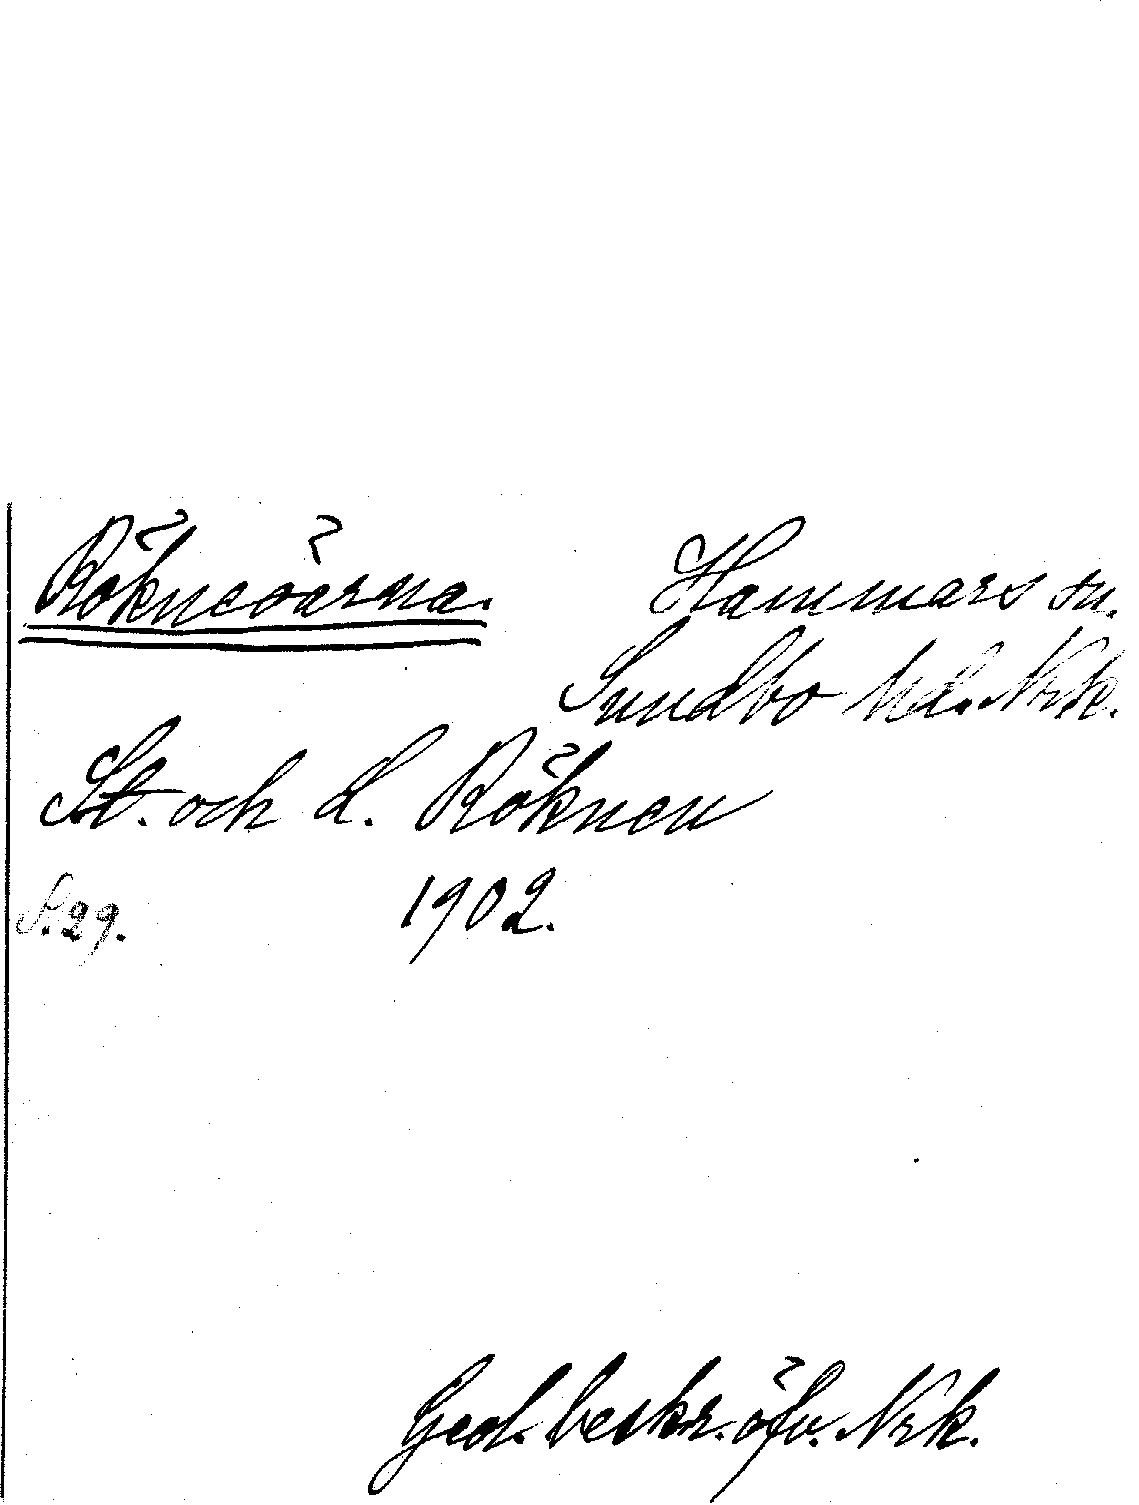 Rökneöarna.
Hammars sn.
Sundbo hd. Nrk.
St. och L. Röknen
S. 29. 1902.
Geol. beskr. öfv. Nrk.